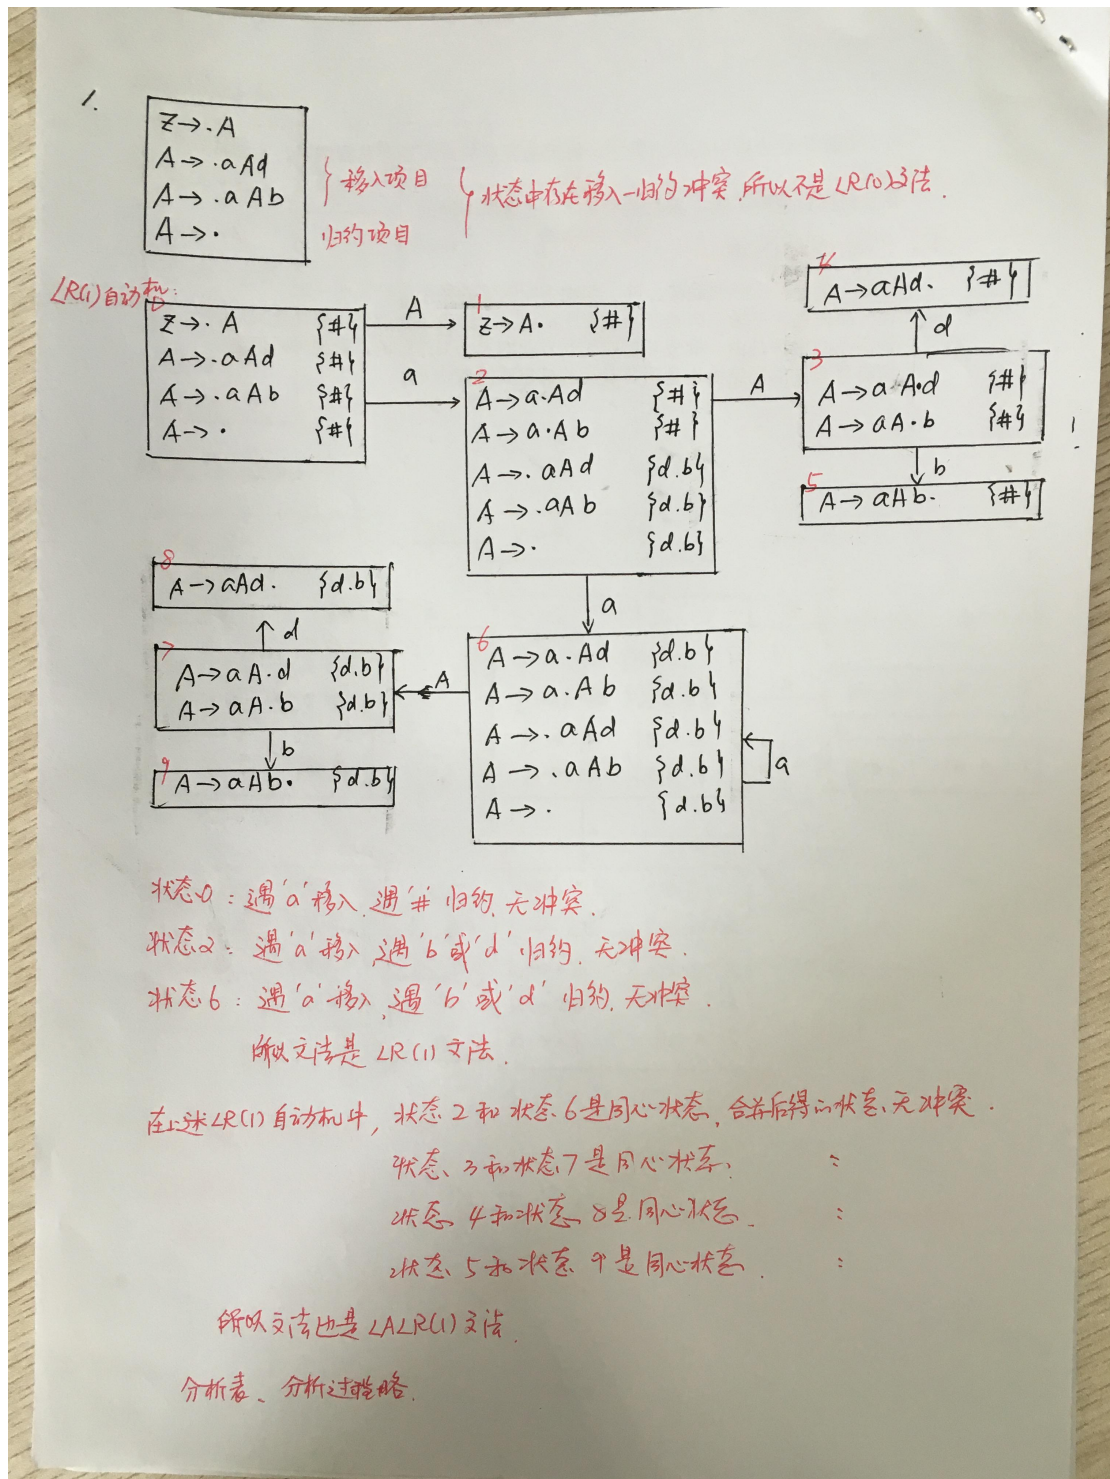 1.
Z→·A
A→·aAd
A→·aAb
A→·
移入项目
归约项目
状态中存在移入-归约冲突,所以不是LR(0)文法.
LR(1)自动机:
0
Z→·A {#}
A→·aAd {#}
A→·aAb {#}
A→· {#}
A
a
1
Z→A· {#}
2
A→a·Ad {#}
A→a·Ab {#}
A→·aAd {d.b}
A→·aAb {d.b}
A→· {d.b}
A
a
4
A→aAd· {#}
d
3
A→aA·d {#}
A→aA·b {#}
b
5
A→aAb· {#}
8
A→aAd· {d.b}
d
7
A→aA·d {d.b}
A→aA·b {d.b}
b
9
A→aAb· {d.b}
A
6
A→a·Ad {d.b}
A→a·Ab {d.b}
A→·aAd {d.b}
A→·aAb {d.b}
A→· {d.b}
a
状态0:遇'a'移入,遇'#'归约,无冲突.
状态2:遇'a'移入,遇'b'或'd'归约,无冲突.
状态6:遇'a'移入,遇'b'或'd'归约,无冲突.
所以文法是LR(1)文法.
在上述LR(1)自动机中,状态2和状态6是同心状态,合并后得的状态无冲突.
状态3和状态7是同心状态, :
状态4和状态8是同心状态. :
状态5和状态9是同心状态. :
所以文法也是LALR(1)文法.
分析表、分析过程略.